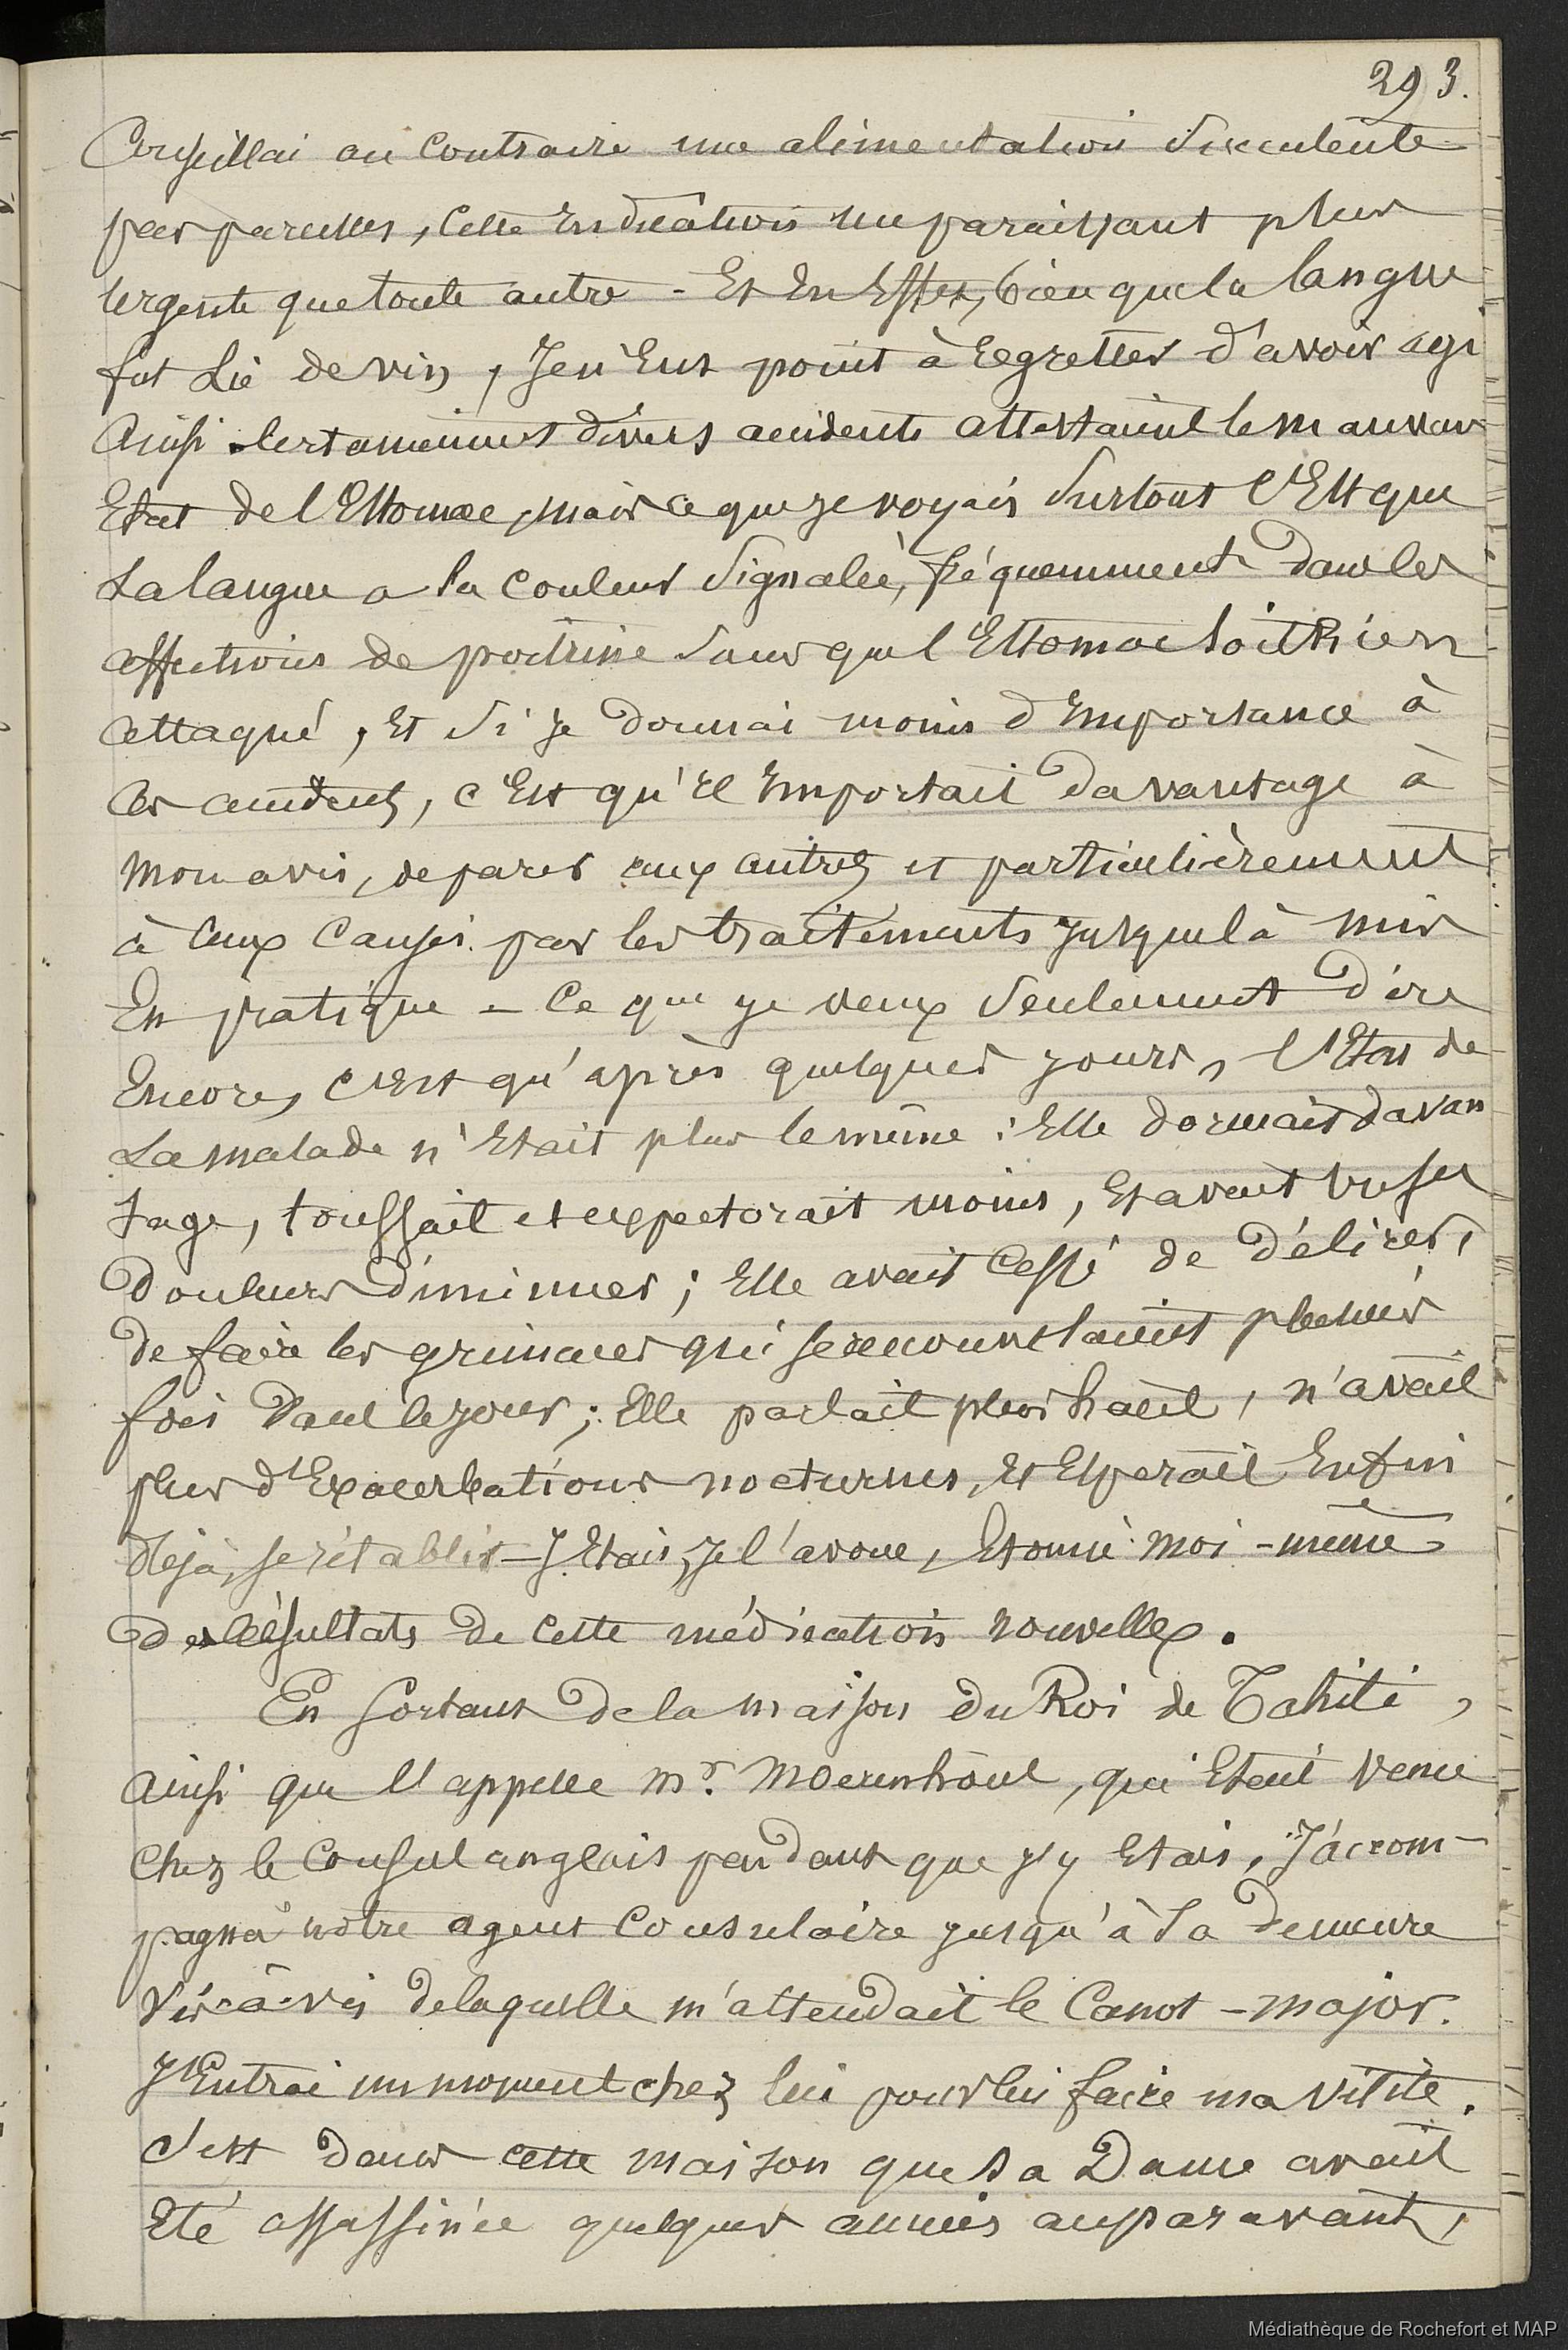 293.
Conseillai au Contraire une alimentation Succulente
par parcelles, Cette Endication me paraissant plus
urgente que toute autre - Et En Effet, bien que la langue
fut Lie de vin, Je n'Eus point à Regretter d'avoir agi
Ainsi. Certainement divers accidents attestaient le mauvais
Etat de l'Estomac, mais ce que je voyais Surtout C'Est que
La langue a la Couleur Signalée, fréquemment dans les
affections de poitrine Sans que l'Estomac soit Rien
attaqué, Et Si je donnai moins d'Emportance à
Ces accidents, c'Est qu'Il Emportait davantage à
Mon avis, de parer aux autres et particulièrement
à Ceux Causés par les traitements jusque là mis
En pratique - Ce que je veux Seulement dire
Encore, c'Est qu'après quelques jours, l'Etat de
La malade n'Etait plus le même : Elle dormait davan
tage, toussait et expectorait moins, Et avait vu ses
douleurs diminuer ; Elle avait Cessé de délirer,
de faire les grimaces qui se plusieurs
fois dans le jour ; Elle parlait plus haut, n'avait
plus d'Exacerbations nocturnes, Et Esperait Enfin
déjà, se rétablir - J'Etais, je l'avoue, Etonné moi-même
des Résultats de Cette médication nouvelle.
En Sortant de la maison du Roi de Tahiti,
Ainsi que l'appelle Mr. Moerenhout, qui Etait Venu
Chez le Consul anglais pendant que j'y Etais, J'accom-
pagnai notre agent Consulaire jusqu'à Sa Demeure
Vis-à-vis de laquelle m'attendait le Canot-major.
J'Entrai un moment chez lui pour lui faire ma visite.
C'est dans cette maison que Sa Dame avait
Eté assassinée quelques années auparavant,
Médiathèque de Rochefort et MAP